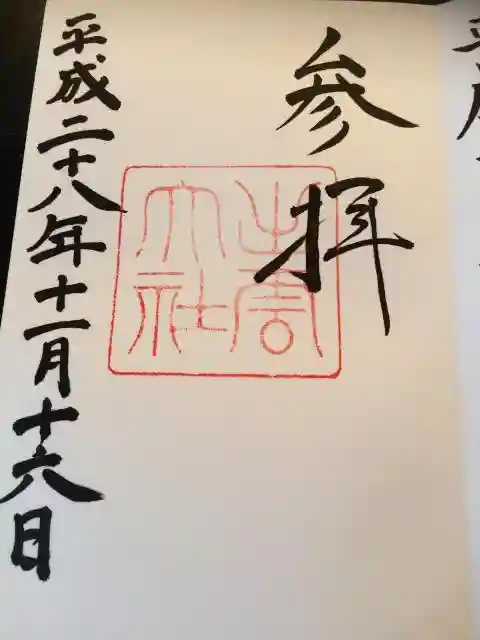 参拝
出雲大社
平成二十八年十一月十六日